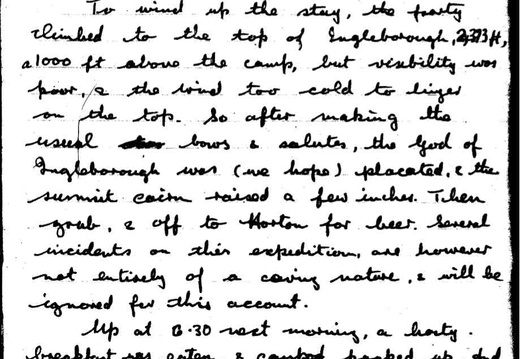 To wind up the stay, the party
climbed to the top of Ingleborough, 2,373 ft,
a 1000 ft above the camp, but visibility was
poor, & the wind too cold to linger
on the top. So after making the
usual bows & salutes, the God of
Ingleborough was (we hope) placated, & the
summit cairn raised a few inches. Then
grub, & off to Horton for beer. Several
incidents on this expedition, are however
not entirely of a caving nature, & will be
ignored for this account.
Up at 8.30 next morning, a hasty
breakfast was eaten & camp packed up and